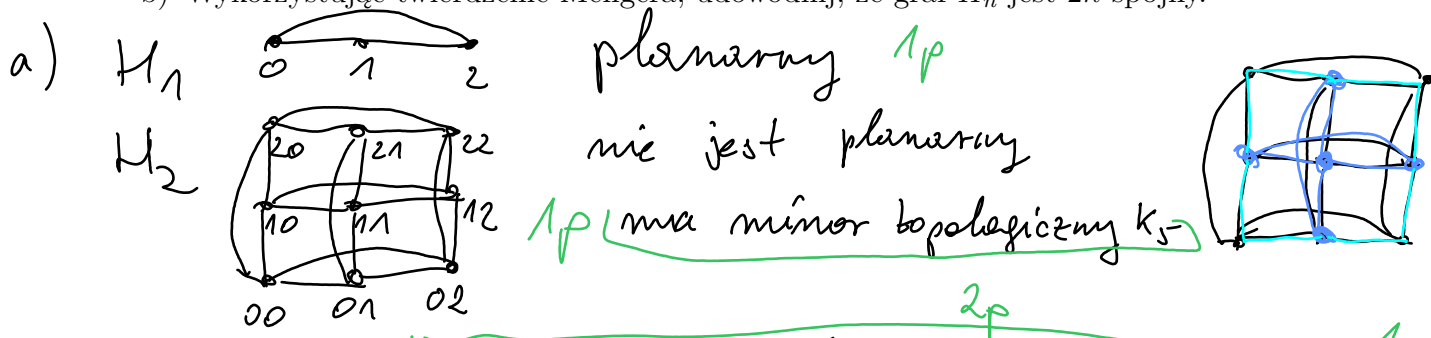 b) Wykorzystując twierdzenie Mengera, udowodnij, że graf Hₙ jest 2n-spójny.
a) H₁ 0 1 2 planarny 1p
H₂ 20 21 22 nie jest planarny
10 11 12 1p ma minor topologiczny K₅
00 01 02
2p